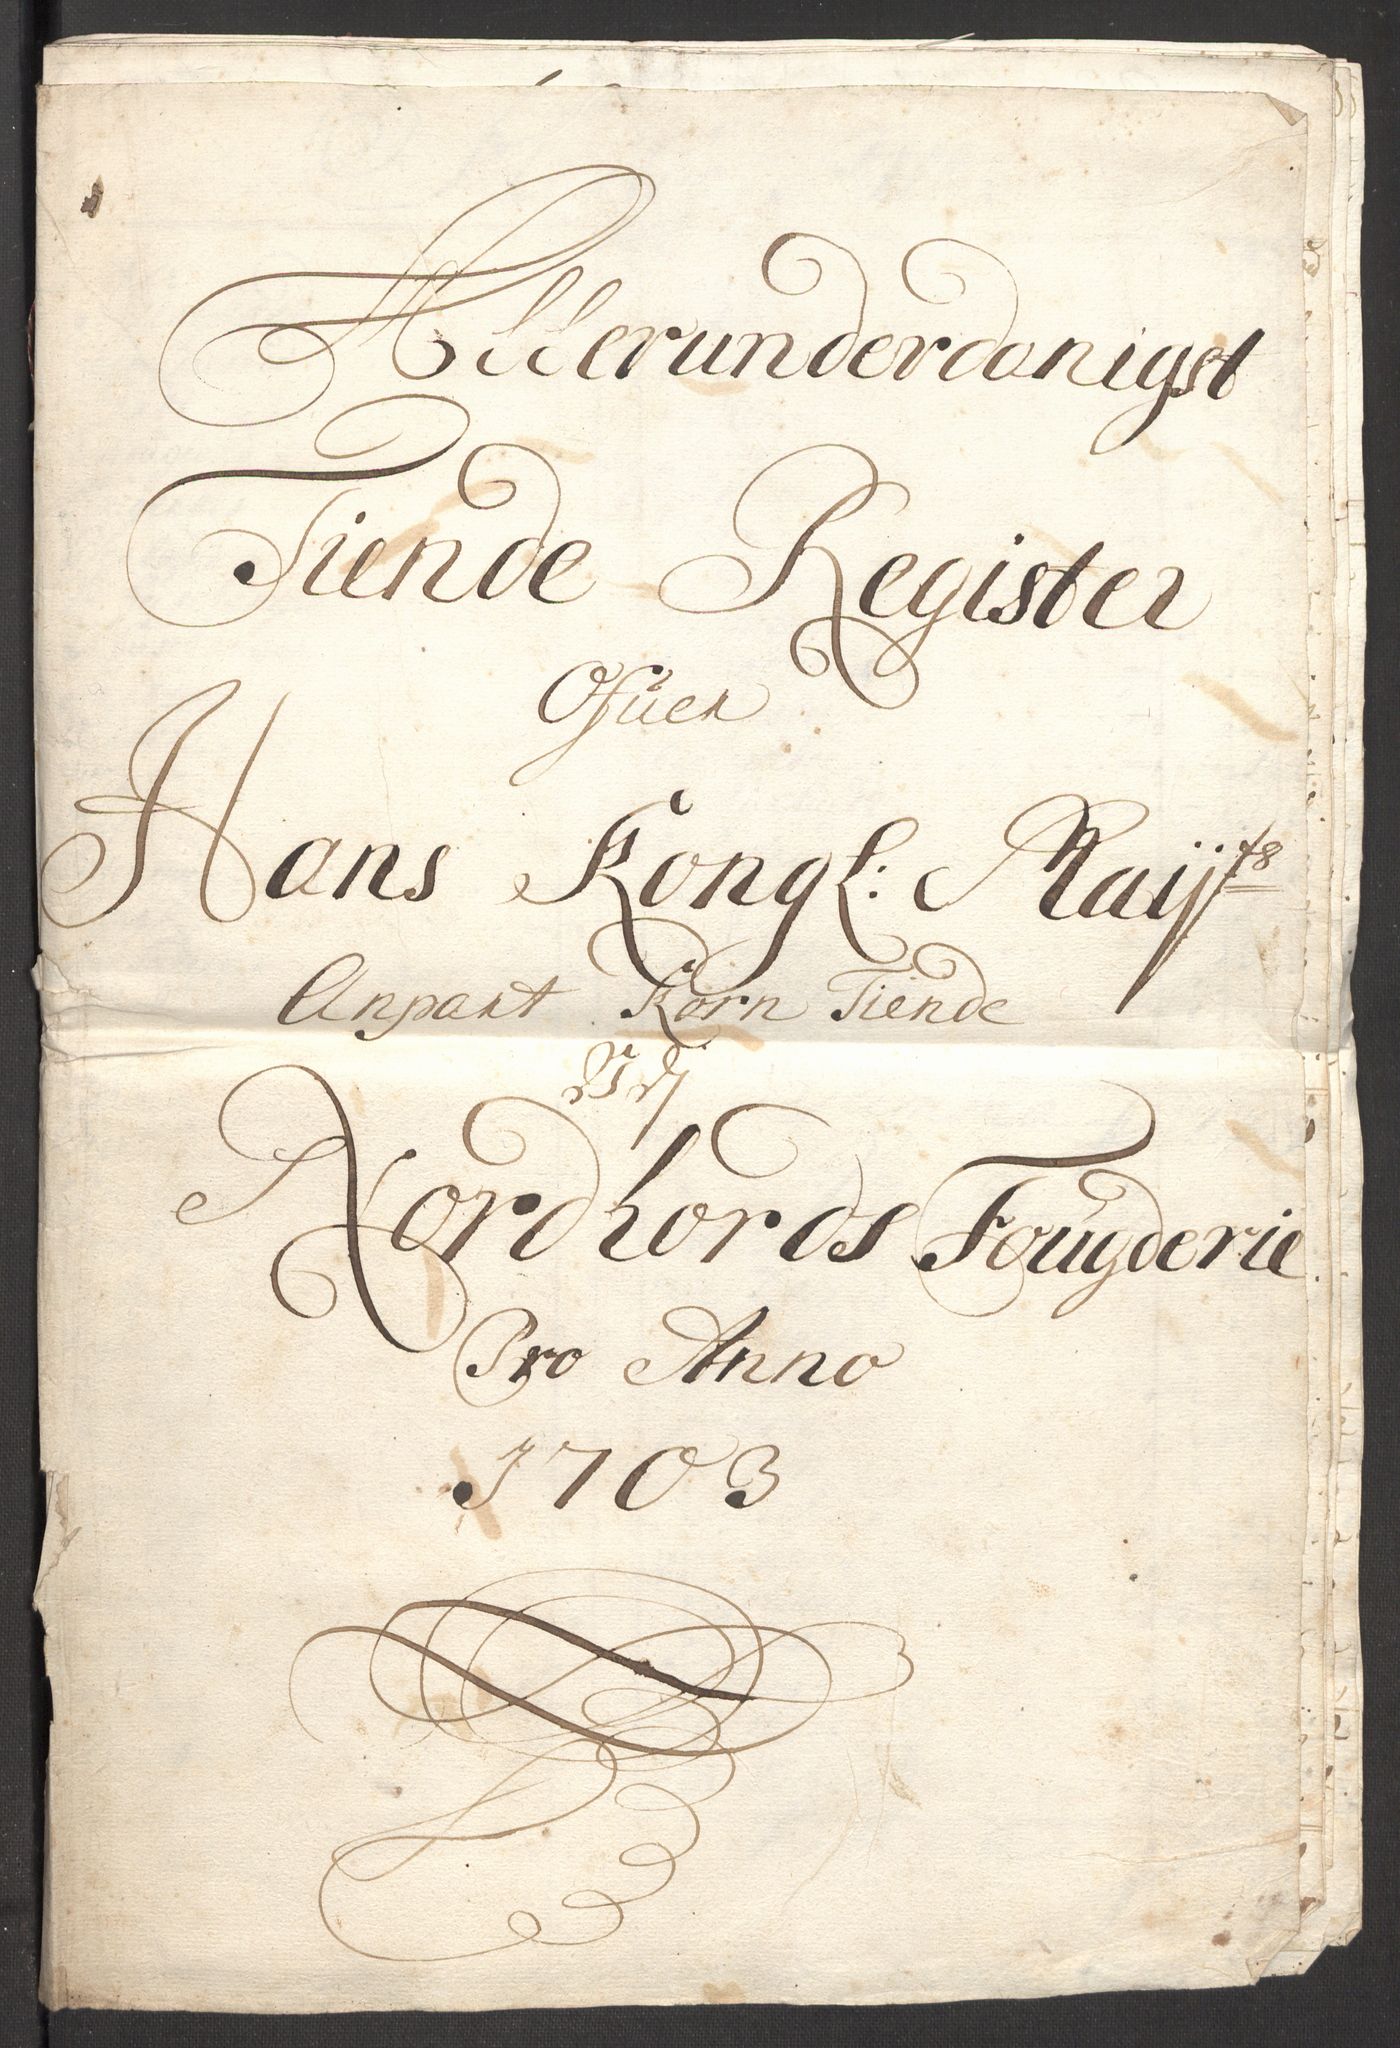 Allerunderdanigst
Tiende Register
Ofuer
Hans Kongl: Maijts
Anpart Korn Tiende
Udj
Nordhords Fougderie
Pro Anno
1703